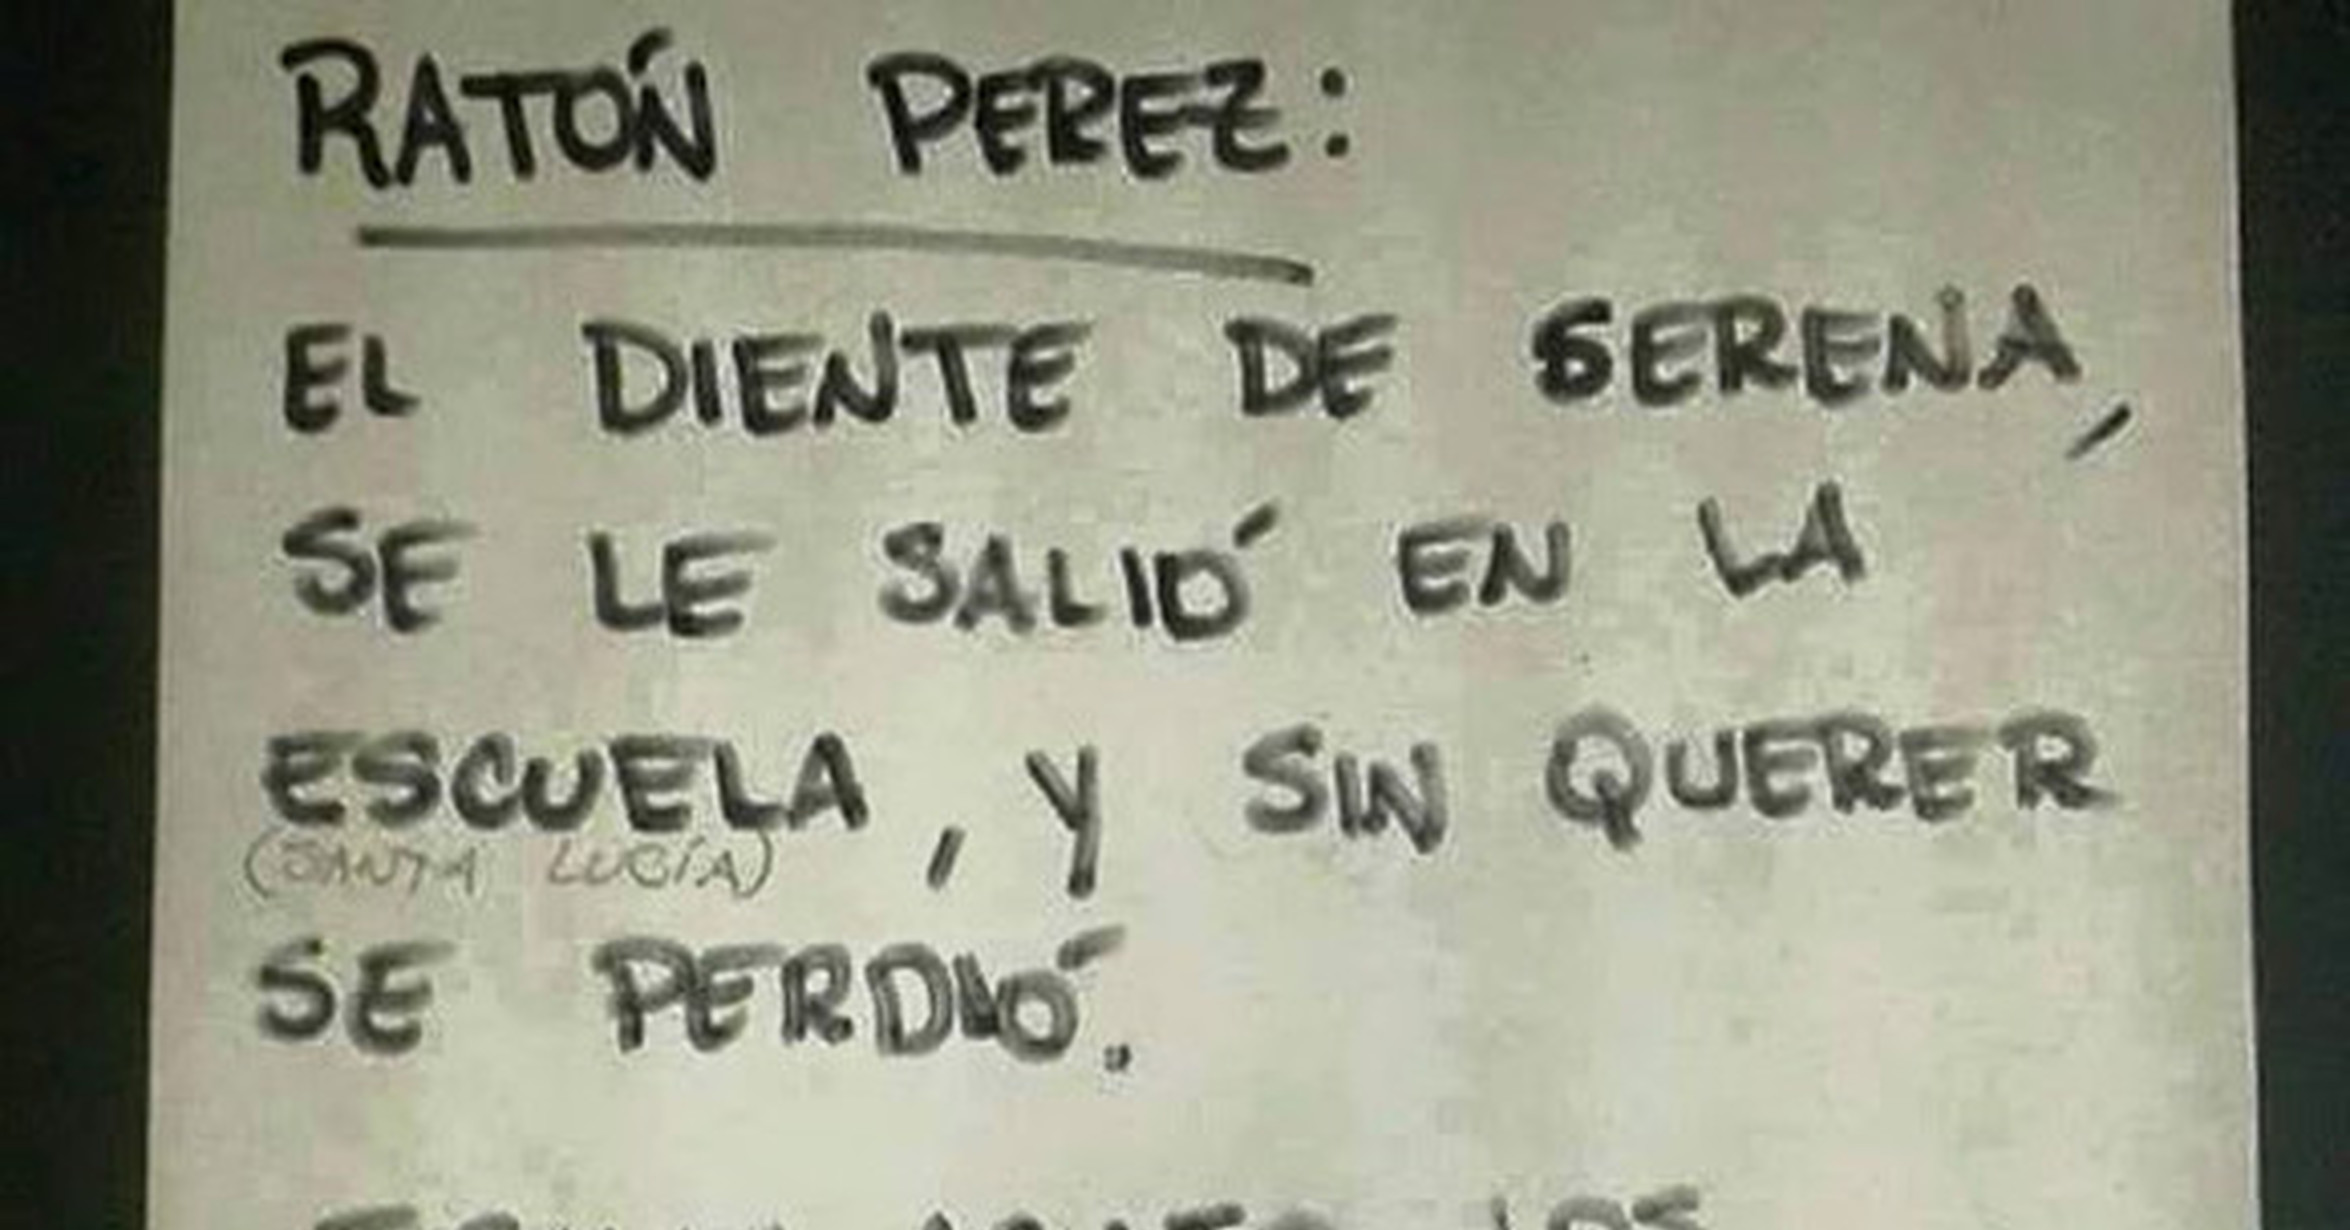 RATÓN PEREZ:
EL DIENTE DE SERENA,
SE LE SALIÓ EN LA
ESCUELA, Y SIN QUERER
(SANTA LUCÍA)
SE PERDIÓ.